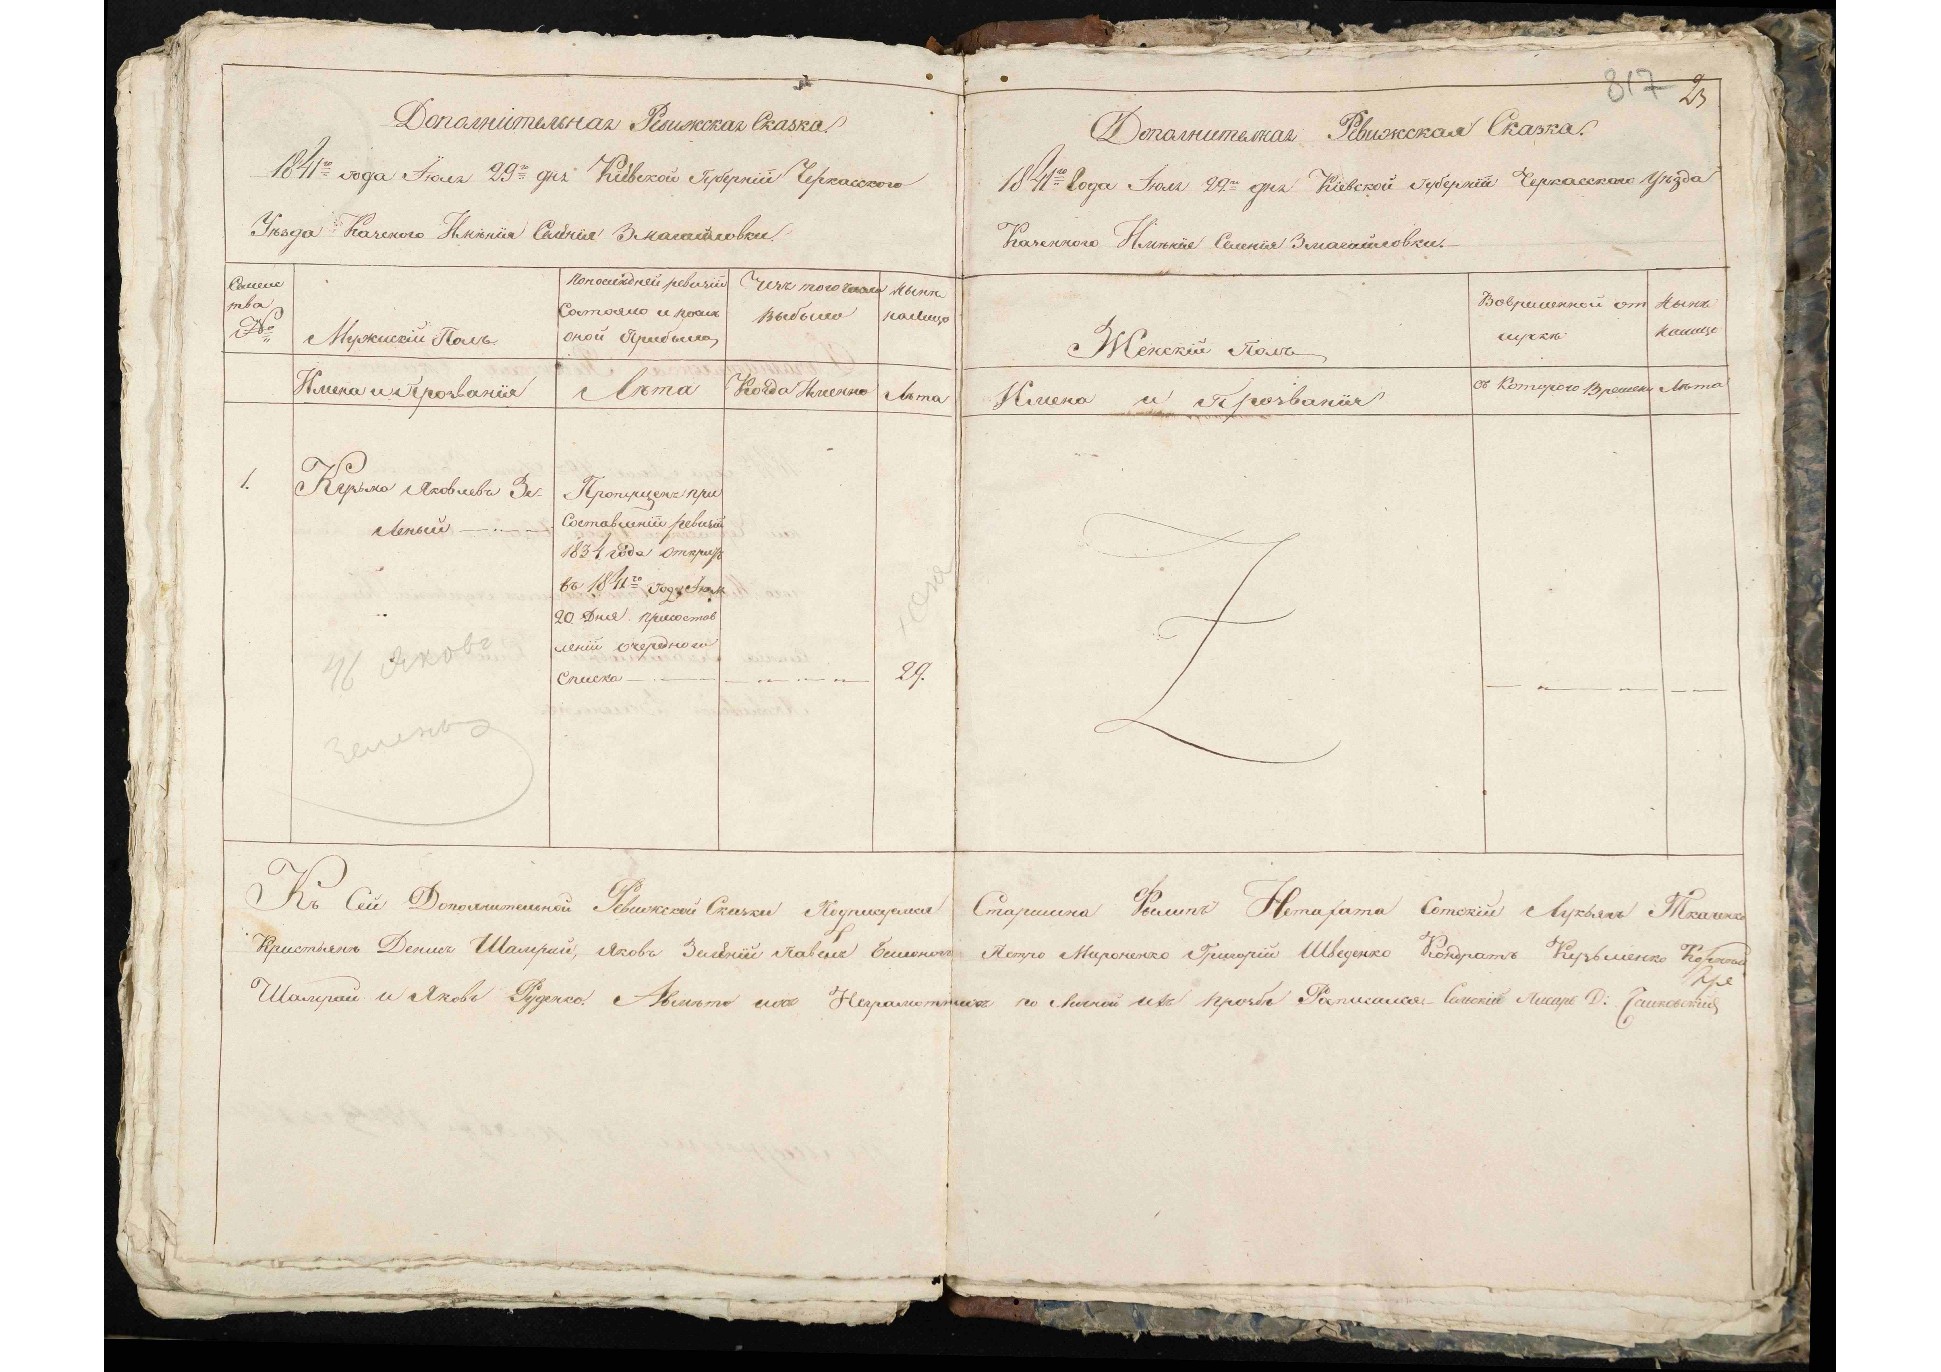 Дополнительная Ревижская Сказка.
1841го года Июля 29го дня Кіевской Губерніи Черкасского
Уѣзда Казеного Имѣнія Селѣнія Змагайловки.
Семейс
тва
№
Мужескій Полъ
Попослѣдней ревизіи
Состояло и послѣ
оной Прибыло
Изъ того числа
Выбыло
Нынѣ
налицо
Имена и Прозванія
Лѣта
Когда Именно
Лѣта
1.
Кузьма Яковлевъ Зе-
леный
Пропущенъ при
Составленіи ревизіи
1834 года открытъ
въ 1841го году Июля
20 Дня при состав
леніи очередного
Списка
29.
Яковъ
817 23
Дополнителная Ревижская Сказка.
1841го Года Июля 29го дня Кіевской Губерніи Черкасского Уѣзда
Казенного Имѣнія Селенія Змагайловки.
Женскій Полъ
Вовременной от
лучкѣ
Нынѣ
налицо
Имена и Прозванія
съ Которого Времени
Лѣта
Къ Сей Дополнителной Ревижской Сказки Старшина Филипъ Сотскій Лукьянъ Ткаченко
Кристьянъ Денисъ Шамрай, Яковъ Зелѣній Павелъ Петро Мироненко Григорій Шведенко Кондратъ Кузьменко
Шамрай и Яковъ Руденко. Авмѣсто ихъ Неграмотныхъ по личной ихъ прозбѣ Росписался Сельскій Писарь D: